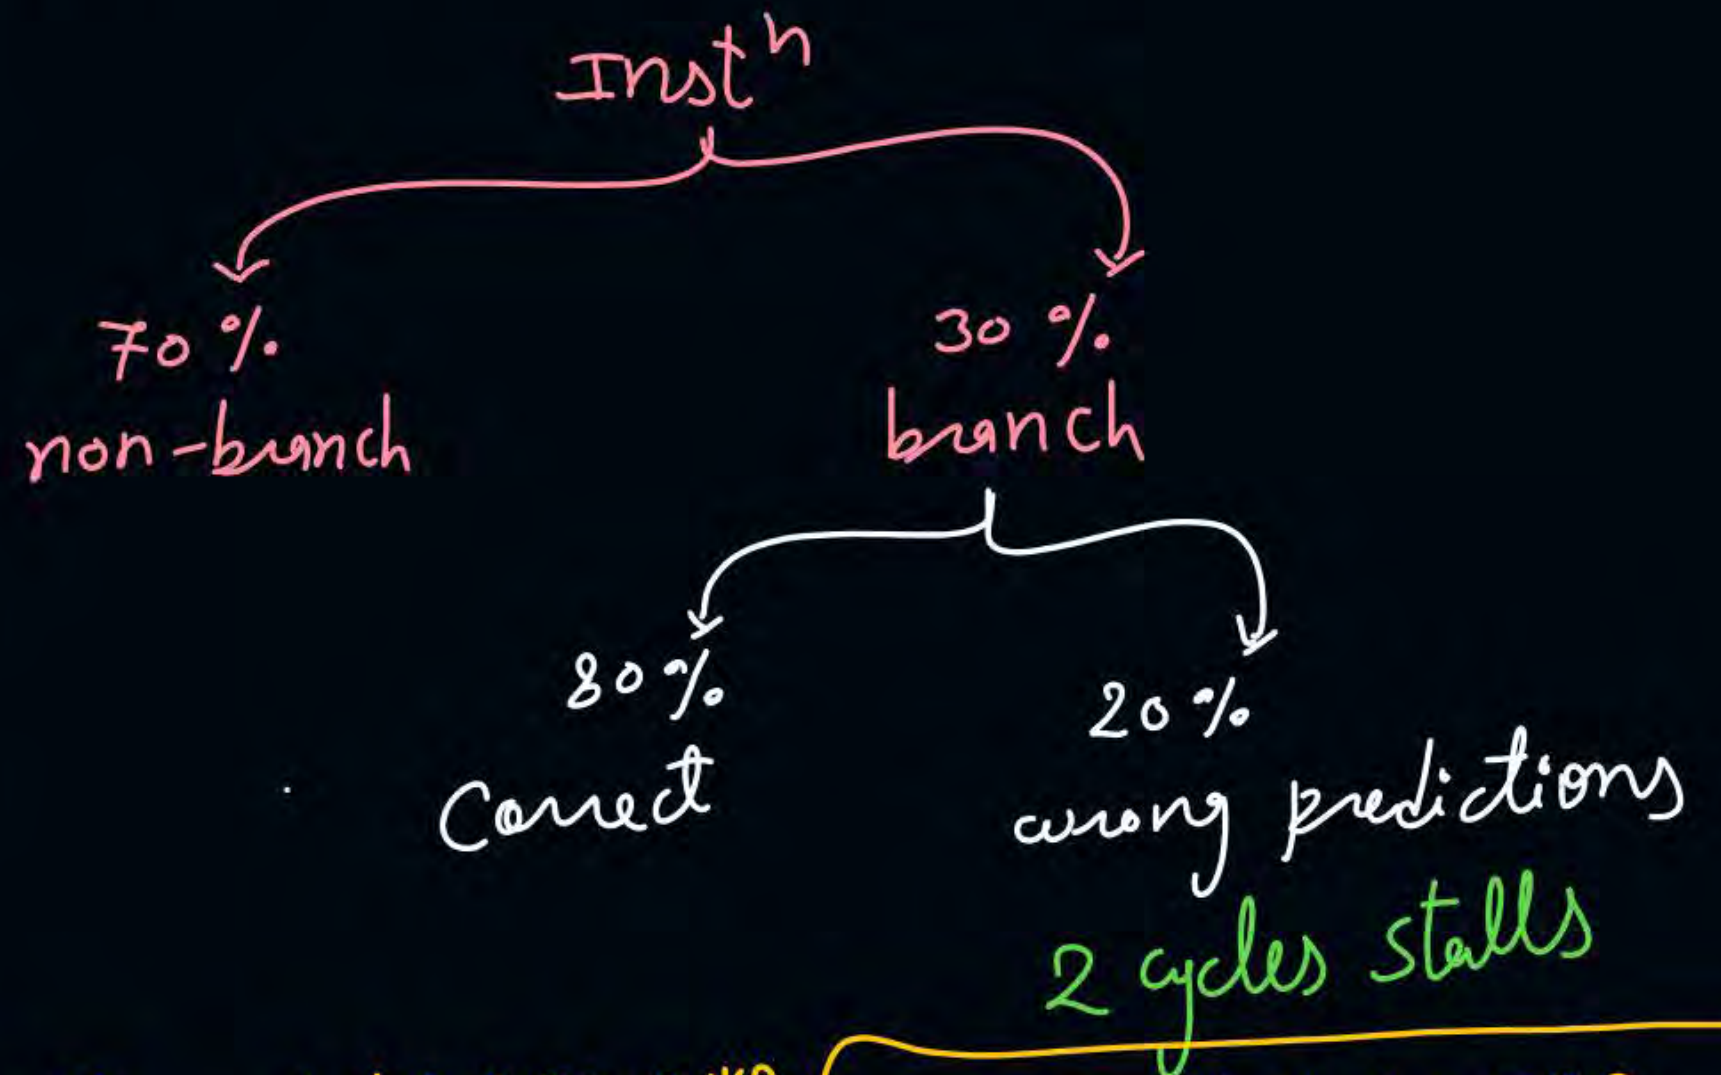 Instⁿ
70 % 30 %
non-branch branch
80 % 20 %
Correct wrong predictions
2 cycles stalls